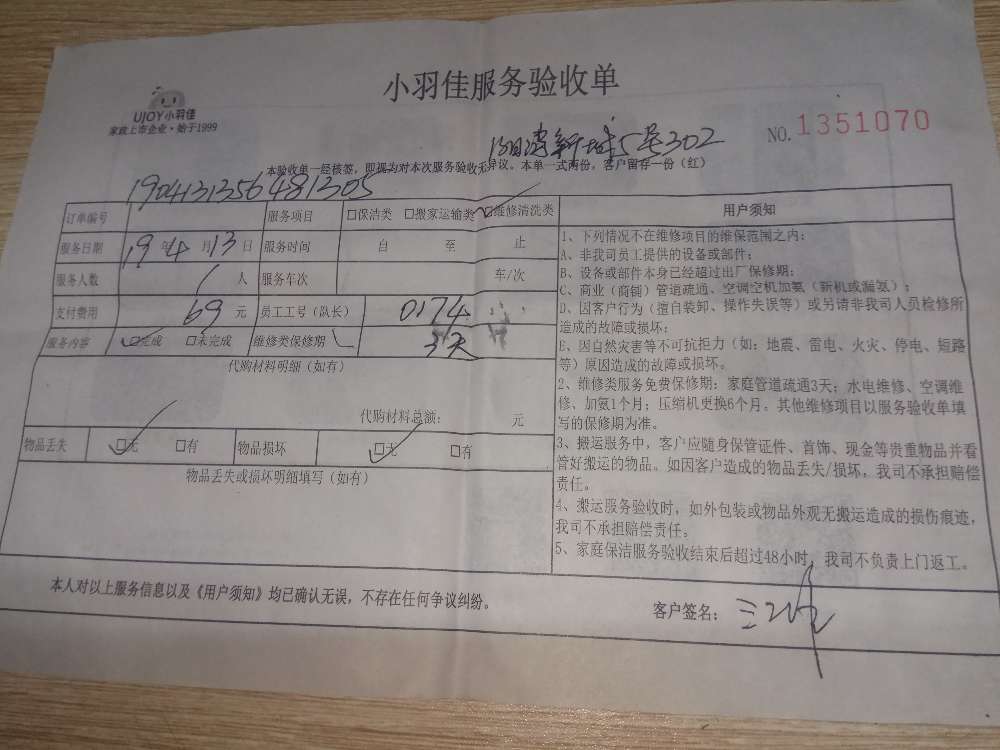 小羽佳服务验收单
UJOY小羽佳
家政上市企业·始于1999
NO.1351070
5号302
本验收单一经核签，即视为对本次服务验收无异议。本单一式两份，客户留存一份（红）
1904131356481305
订单编号 服务项目 □保洁类 □搬家运输类 □维修清洗类
服务日期 19年4月13日 服务时间 自 至 止
服务人数 1人 服务车次 车/次
支付费用 69元 员工工号（队长） 0174
服务内容 □完成 □未完成 维修类保修期 3天
代购材料明细（如有）
代购材料总额： 元
物品丢失 □无 □有 物品损坏 □无 □有
物品丢失或损坏明细填写（如有）
用户须知
1、下列情况不在维修项目的维保范围之内：
A、非我司员工提供的设备或部件；
B、设备或部件本身已经超过出厂保修期；
C、商业（商铺）管道疏通、空调空机加氨（新机或漏氨）；
D、因客户行为（擅自装卸、操作失误等）或另请非我司人员检修所
造成的故障或损坏；
E、因自然灾害等不可抗拒力（如：地震、雷电、火灾、停电、短路
等）原因造成的故障或损坏。
2、维修类服务免费保修期：家庭管道疏通3天；水电维修、空调维
修、加氨1个月；压缩机更换6个月。其他维修项目以服务验收单填
写的保修期为准。
3、搬运服务中，客户应随身保管证件、首饰、现金等贵重物品并看
管好搬运的物品。如因客户造成的物品丢失/损坏，我司不承担赔偿
责任。
4、搬运服务验收时，如外包装或物品外观无搬运造成的损伤痕迹，
我司不承担赔偿责任。
5、家庭保洁服务验收结束后超过48小时，我司不负责上门返工。
本人对以上服务信息以及《用户须知》均已确认无误，不存在任何争议纠纷。
客户签名：